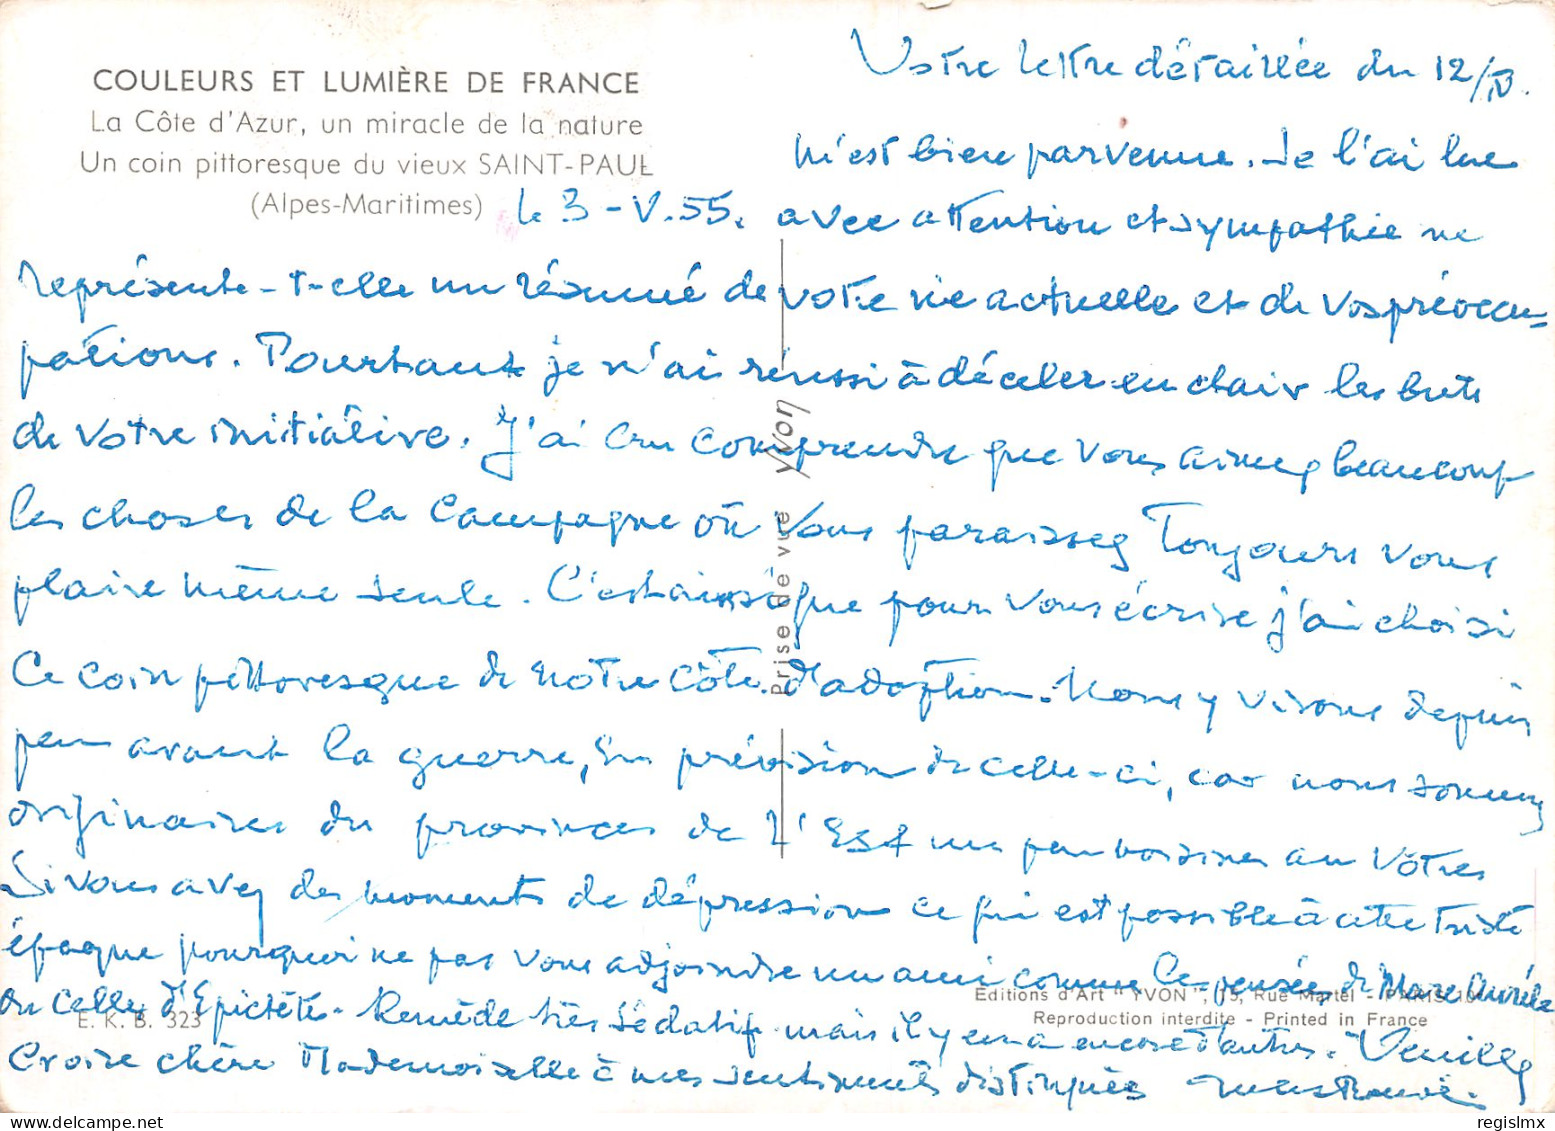 COULEURS ET LUMIÈRE DE FRANCE
La Côte d'Azur, un miracle de la nature
Un coin pittoresque du vieux SAINT-PAUL
(Alpes-Maritimes)
le 3-V.55.
Votre lettre détaillée du 12/IV.
m'est bien parvenue. Je l'ai lue
avec attention et sympathie ne
représente-t-elle un résumé de votre vie actuelle et de vos préoccu-
pations. Pourtant je n'ai réussi à déceler en clair les buts
de votre initiative. J'ai cru comprendre que vous aimez beaucoup
les choses de la Campagne où vous paraissez toujours vous
plaire même seule. C'est ainsi que pour vous écrire j'ai choisi
ce coin pittoresque de notre côte d'adoption. Nous y vivons depuis
peu avant la guerre, en prévision de celle-ci, car nous sommes
originaires du provinces de l'Est un peu voisines au Vôtres
Si vous avez des moments de dépression ce qui est possible à cette triste
époque pourquoi ne pas vous adjoindre un ami comme la pensée de Marc Aurèle
ou celles d'Epictète. Remède très sédatif mais il y en a encore d'autres. Veuillez
croire chère Mademoiselle à mes sentiments distingués
Prise de vue Yvon
Editions d'Art "YVON", 15, Rue Martel - PARIS-10e
E. K. B. 323
Reproduction interdite - Printed in France
regislmx